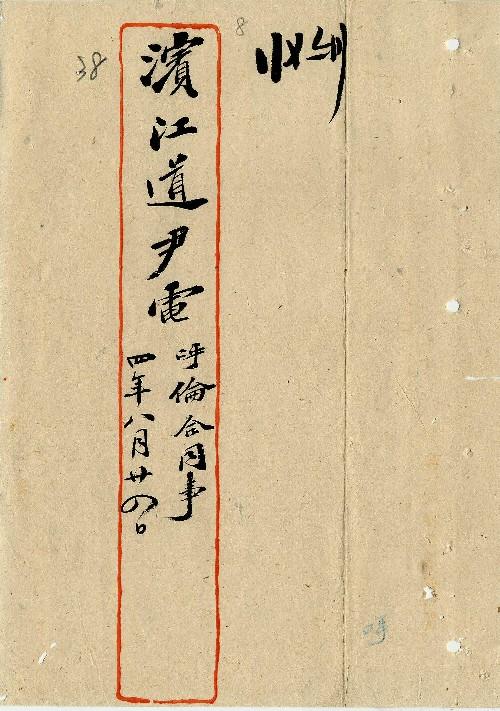 8
濱江道尹電
呼倫合同事
四年八月廿四日
38
呼